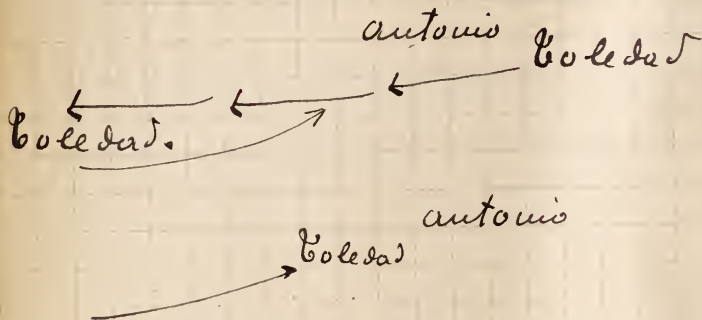 antonio
Soledad
Soledad.
antonio
Soledad